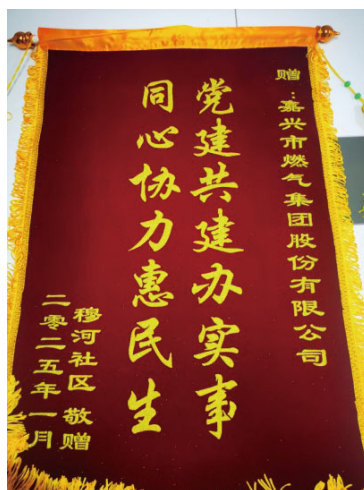 赠：嘉兴市燃气集团股份有限公司
党建共建办实事
同心协力惠民生
穆河社区 敬赠
二零二五年一月